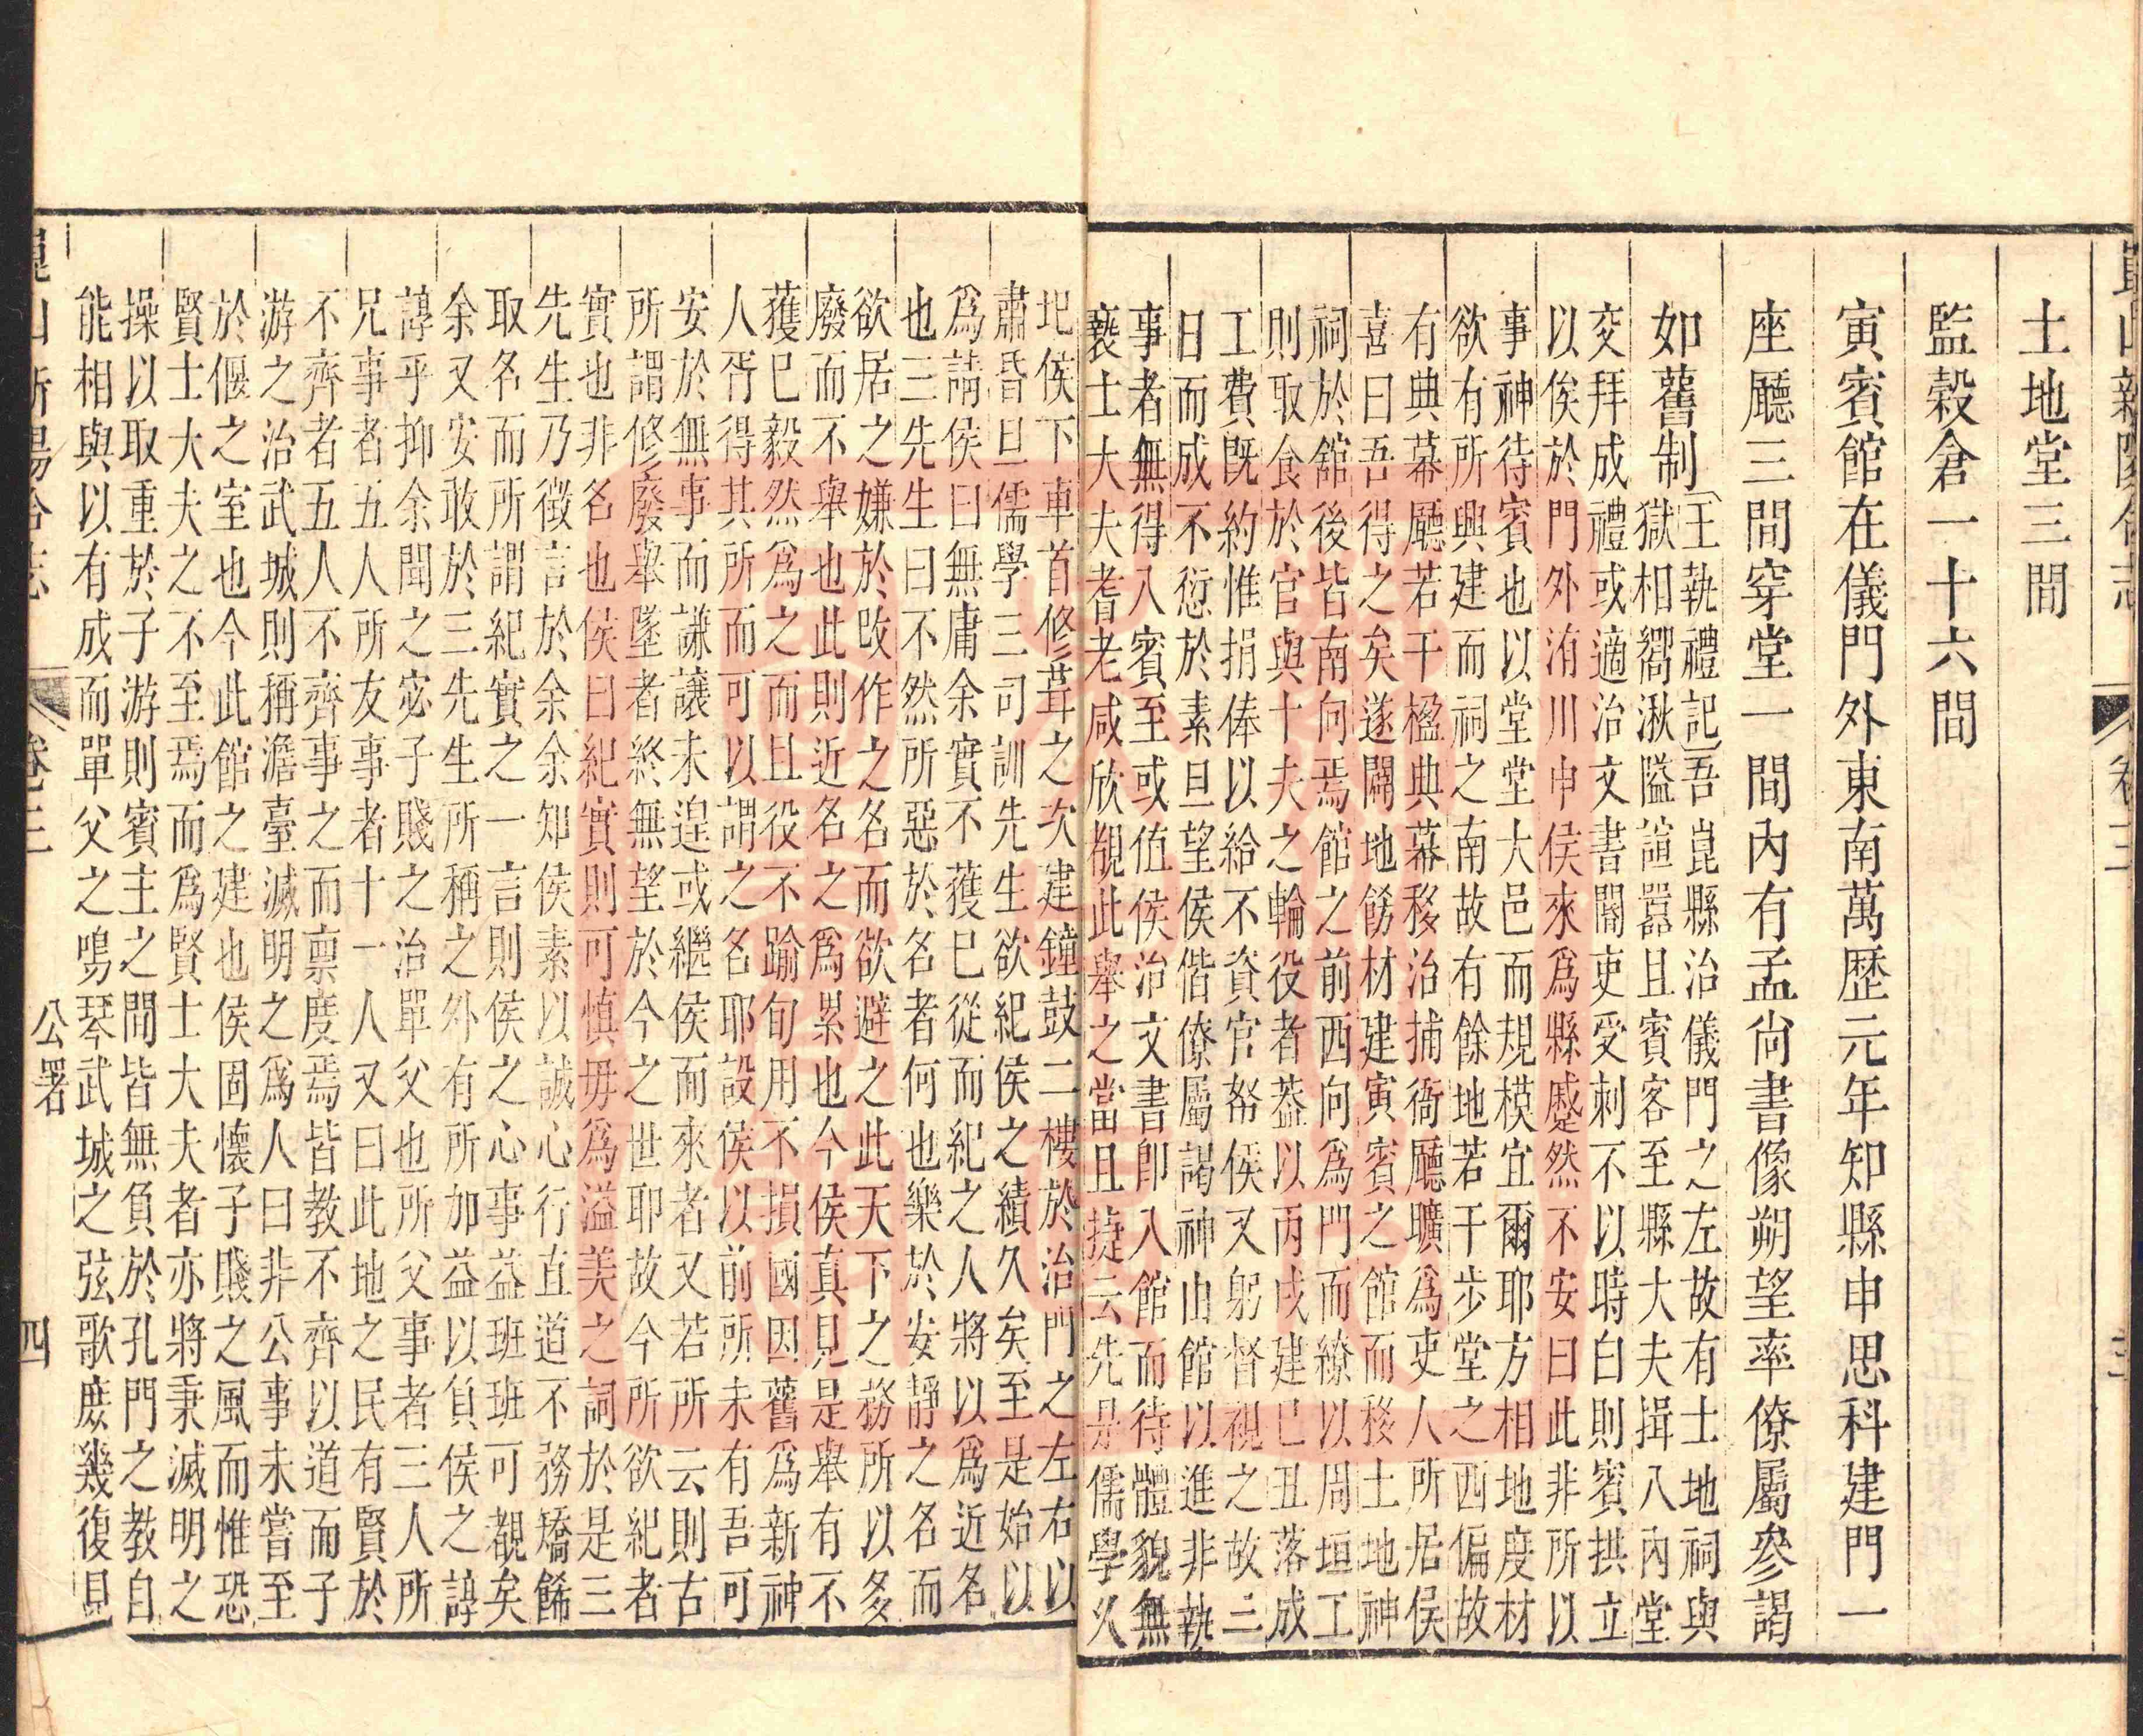 崑山新陽合志
卷三
三
土地堂三間
監穀倉一十六間
寅賓館在儀門外東南萬歷元年知縣申思科建門一
座廳三間穿堂一間內有孟尚書像朔望率僚屬參謁
如舊制
王執禮記吾崑縣治儀門之左故有士地祠與
獄相嚮湫隘諠囂且賓客至縣大夫揖入內堂
交拜成禮或適治文書閽吏受刺不以時白則賓拱立
以俟於門外洧川申侯來爲縣蹙然不安曰此非所以
事神待賓也以堂堂大邑而規模宜爾耶方相地度材
欲有所興建而祠之南故有餘地若干步堂之西偏故
有典幕廳若干楹典幕移治捕衙廳曠爲吏人所居侯
喜曰吾得之矣遂闢地餝材建寅賓之館而移土地神
祠於舘後皆南向焉館之前西向爲門而繚以周垣工
則取食於官與十夫之輪役者葢以丙戌建己丑落成
工費既約惟捐俸以給不資官帑侯又躬督視之故三
日而成不愆於素旦望侯偕僚屬謁神由館以進非執
事者無得入賓至或值侯治文書卽入館而待體貌無
褻士大夫耆老咸欣覩此舉之當且㨗云先是儒學久
圮侯下車首修葺之次建鐘鼓二樓於治門之左右以
肅昏旦儒學三司訓先生欲紀侯之績久矣至是始以
爲請侯曰無庸余實不獲已從而紀之人將以爲近名
也三先生曰不然所惡於名者何也樂於安靜之名而
欲居之嫌於改作之名而欲避之此天下之務所以多
廢而不舉也此則近名之爲累也今侯真見是舉有不
獲已毅然爲之而且役不踰旬用不損國因舊爲新神
人胥得其所而可以謂之名耶設侯以前所未有吾可
安於無事而謙讓未遑或繼侯而來者又若所云則古
所謂修廢舉墜者終無望於今之世耶故今所欲紀者
實也非名也侯曰紀實則可慎毋爲溢美之詞於是三
先生乃徵言於余余知侯素以誠心行直道不務矯餙
取名而所謂紀實之一言則侯之心事益班班可覩矣
余又安敢於三先生所稱之外有所加益以負侯之諄
諄乎抑余聞之宓子賤之治單父也所父事者三人所
兄事者五人所友事者十一人又曰此地之民有賢於
不齊者五人不齊事之而禀度焉皆教不齊以道而子
游之治武城則稱澹臺滅明之爲人曰非公事未嘗至
於偃之室也今此館之建也侯固懷子賤之風而惟恐
賢士大夫之不至焉而爲賢士大夫者亦將秉滅明之
操以取重於子游則賓主之間皆無負於孔門之教自
能相與以有成而單父之鳴琴武城之弦歌庶幾復見
崑山新陽合志
卷三
公署
四